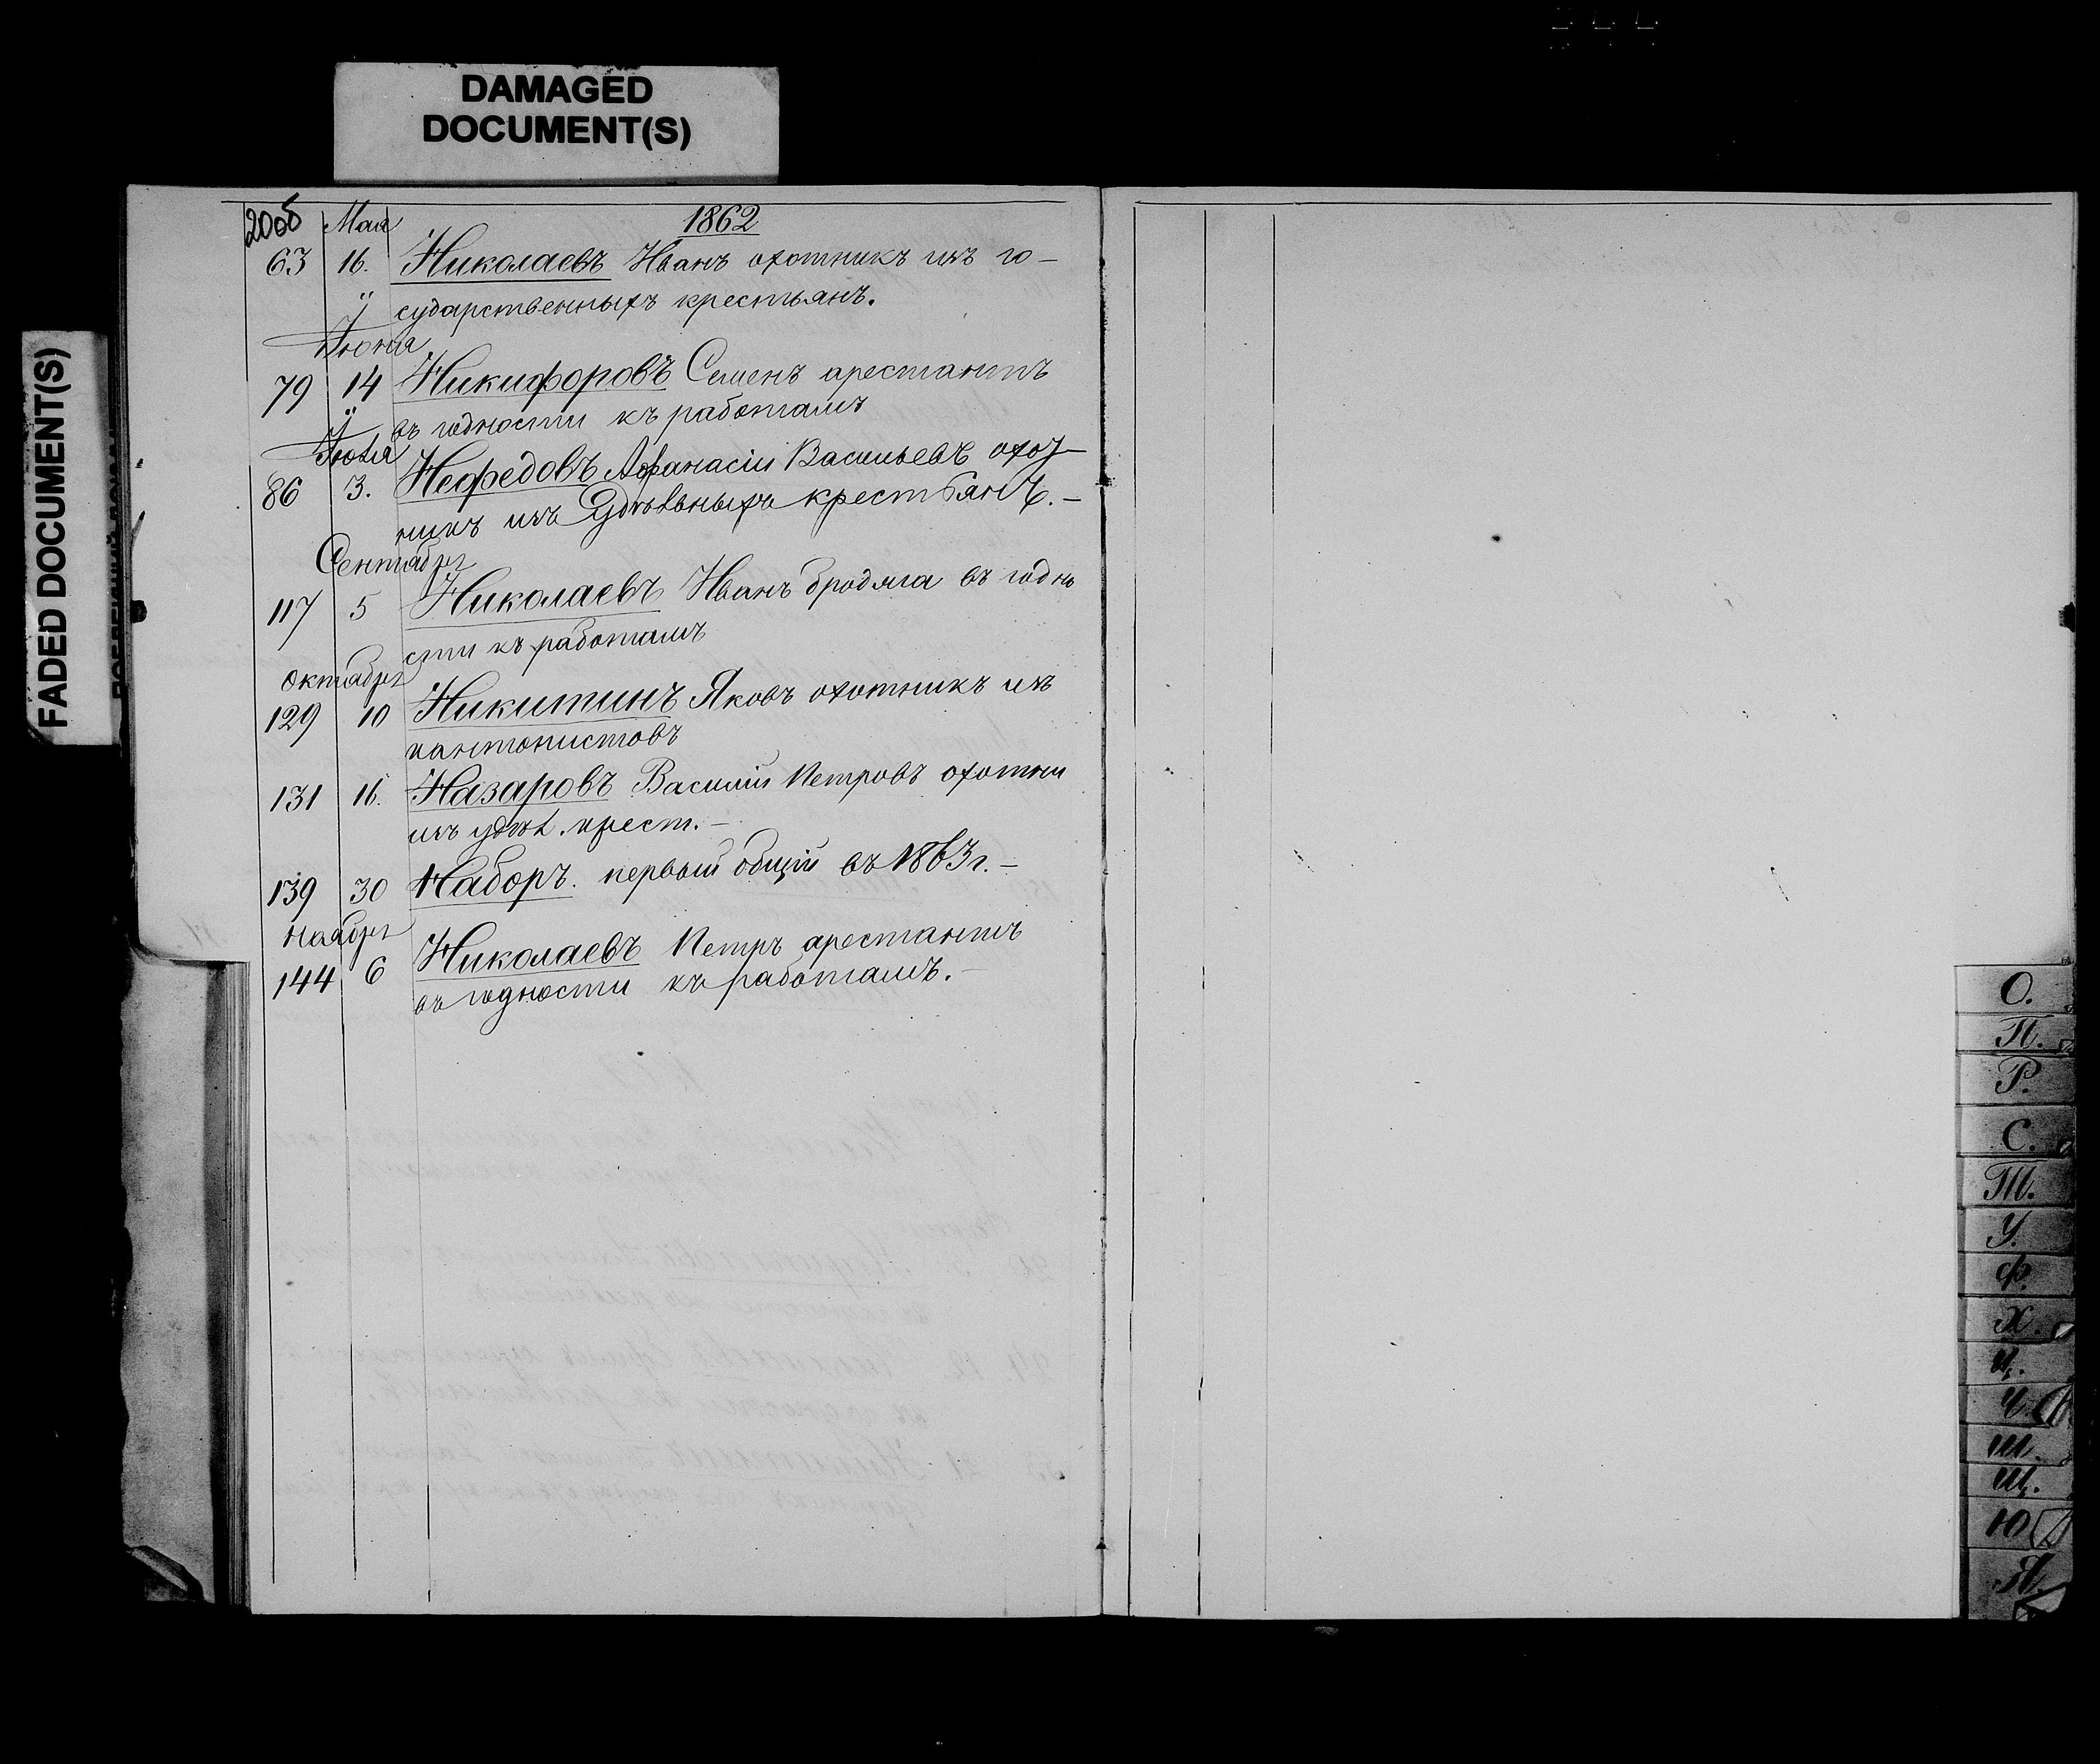 DAMAGED
DOCUMENT(S)
FADED DOCUMENT(S)
200б Мая 1862
63 16. Николаевъ Иванъ охотникъ изъ го-
сударственныхъ крестьянъ.
Іюня
79 14 Никифоровъ Семенъ арестантъ
въ годности къ работамъ
Іюля
86 3. Нефедовъ Афанасій Васильевъ охот-
никъ изъ Удѣльныхъ крестьянъ.-
Сентября
117 5 Николаевъ Иванъ бродяга въ годно
сти къ работамъ
Октября
129 10 Никитинъ Яковъ охотникъ изъ
кантонистовъ
131 16. Назаровъ Василій Петровъ охотни
изъ удѣл. крест.-
139 30 Наборъ. первый общій въ 1863 г.-
Ноября
144 6 Николаевъ Петръ арестантъ
въ годности къ работамъ.-
О.
П.
Р.
С.
Т.
У.
Ф.
Х.
Ц.
Ч.
Ш.
Щ.
Ю
Я.